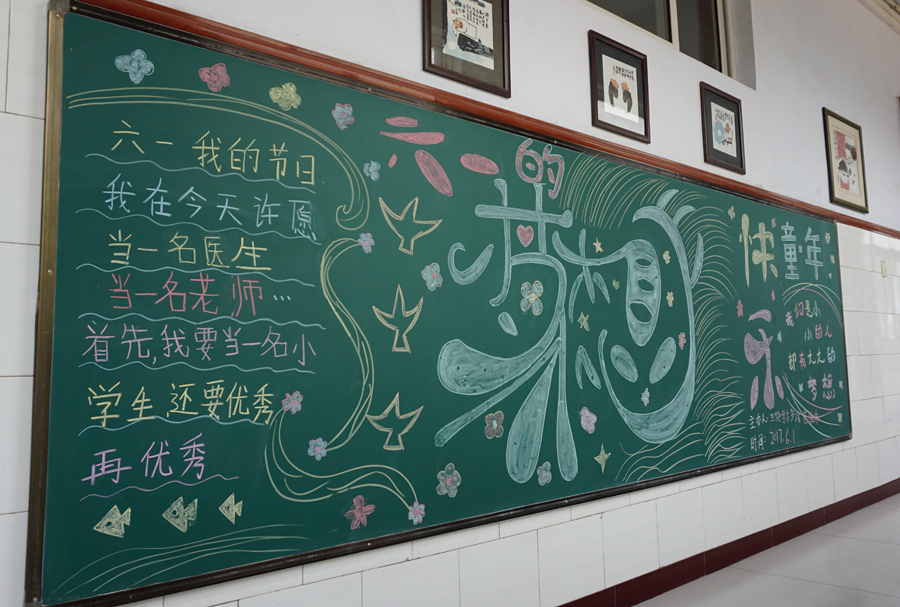 六一 我的节日
我在今天许愿
当一名医生
当一名老师…
首先,我要当一名小
学生,还要优秀
再优秀
六一的
梦想
快乐
童年
我们是小
小的人
都有大大的
梦想
主办人:
时间: 2017.6.1